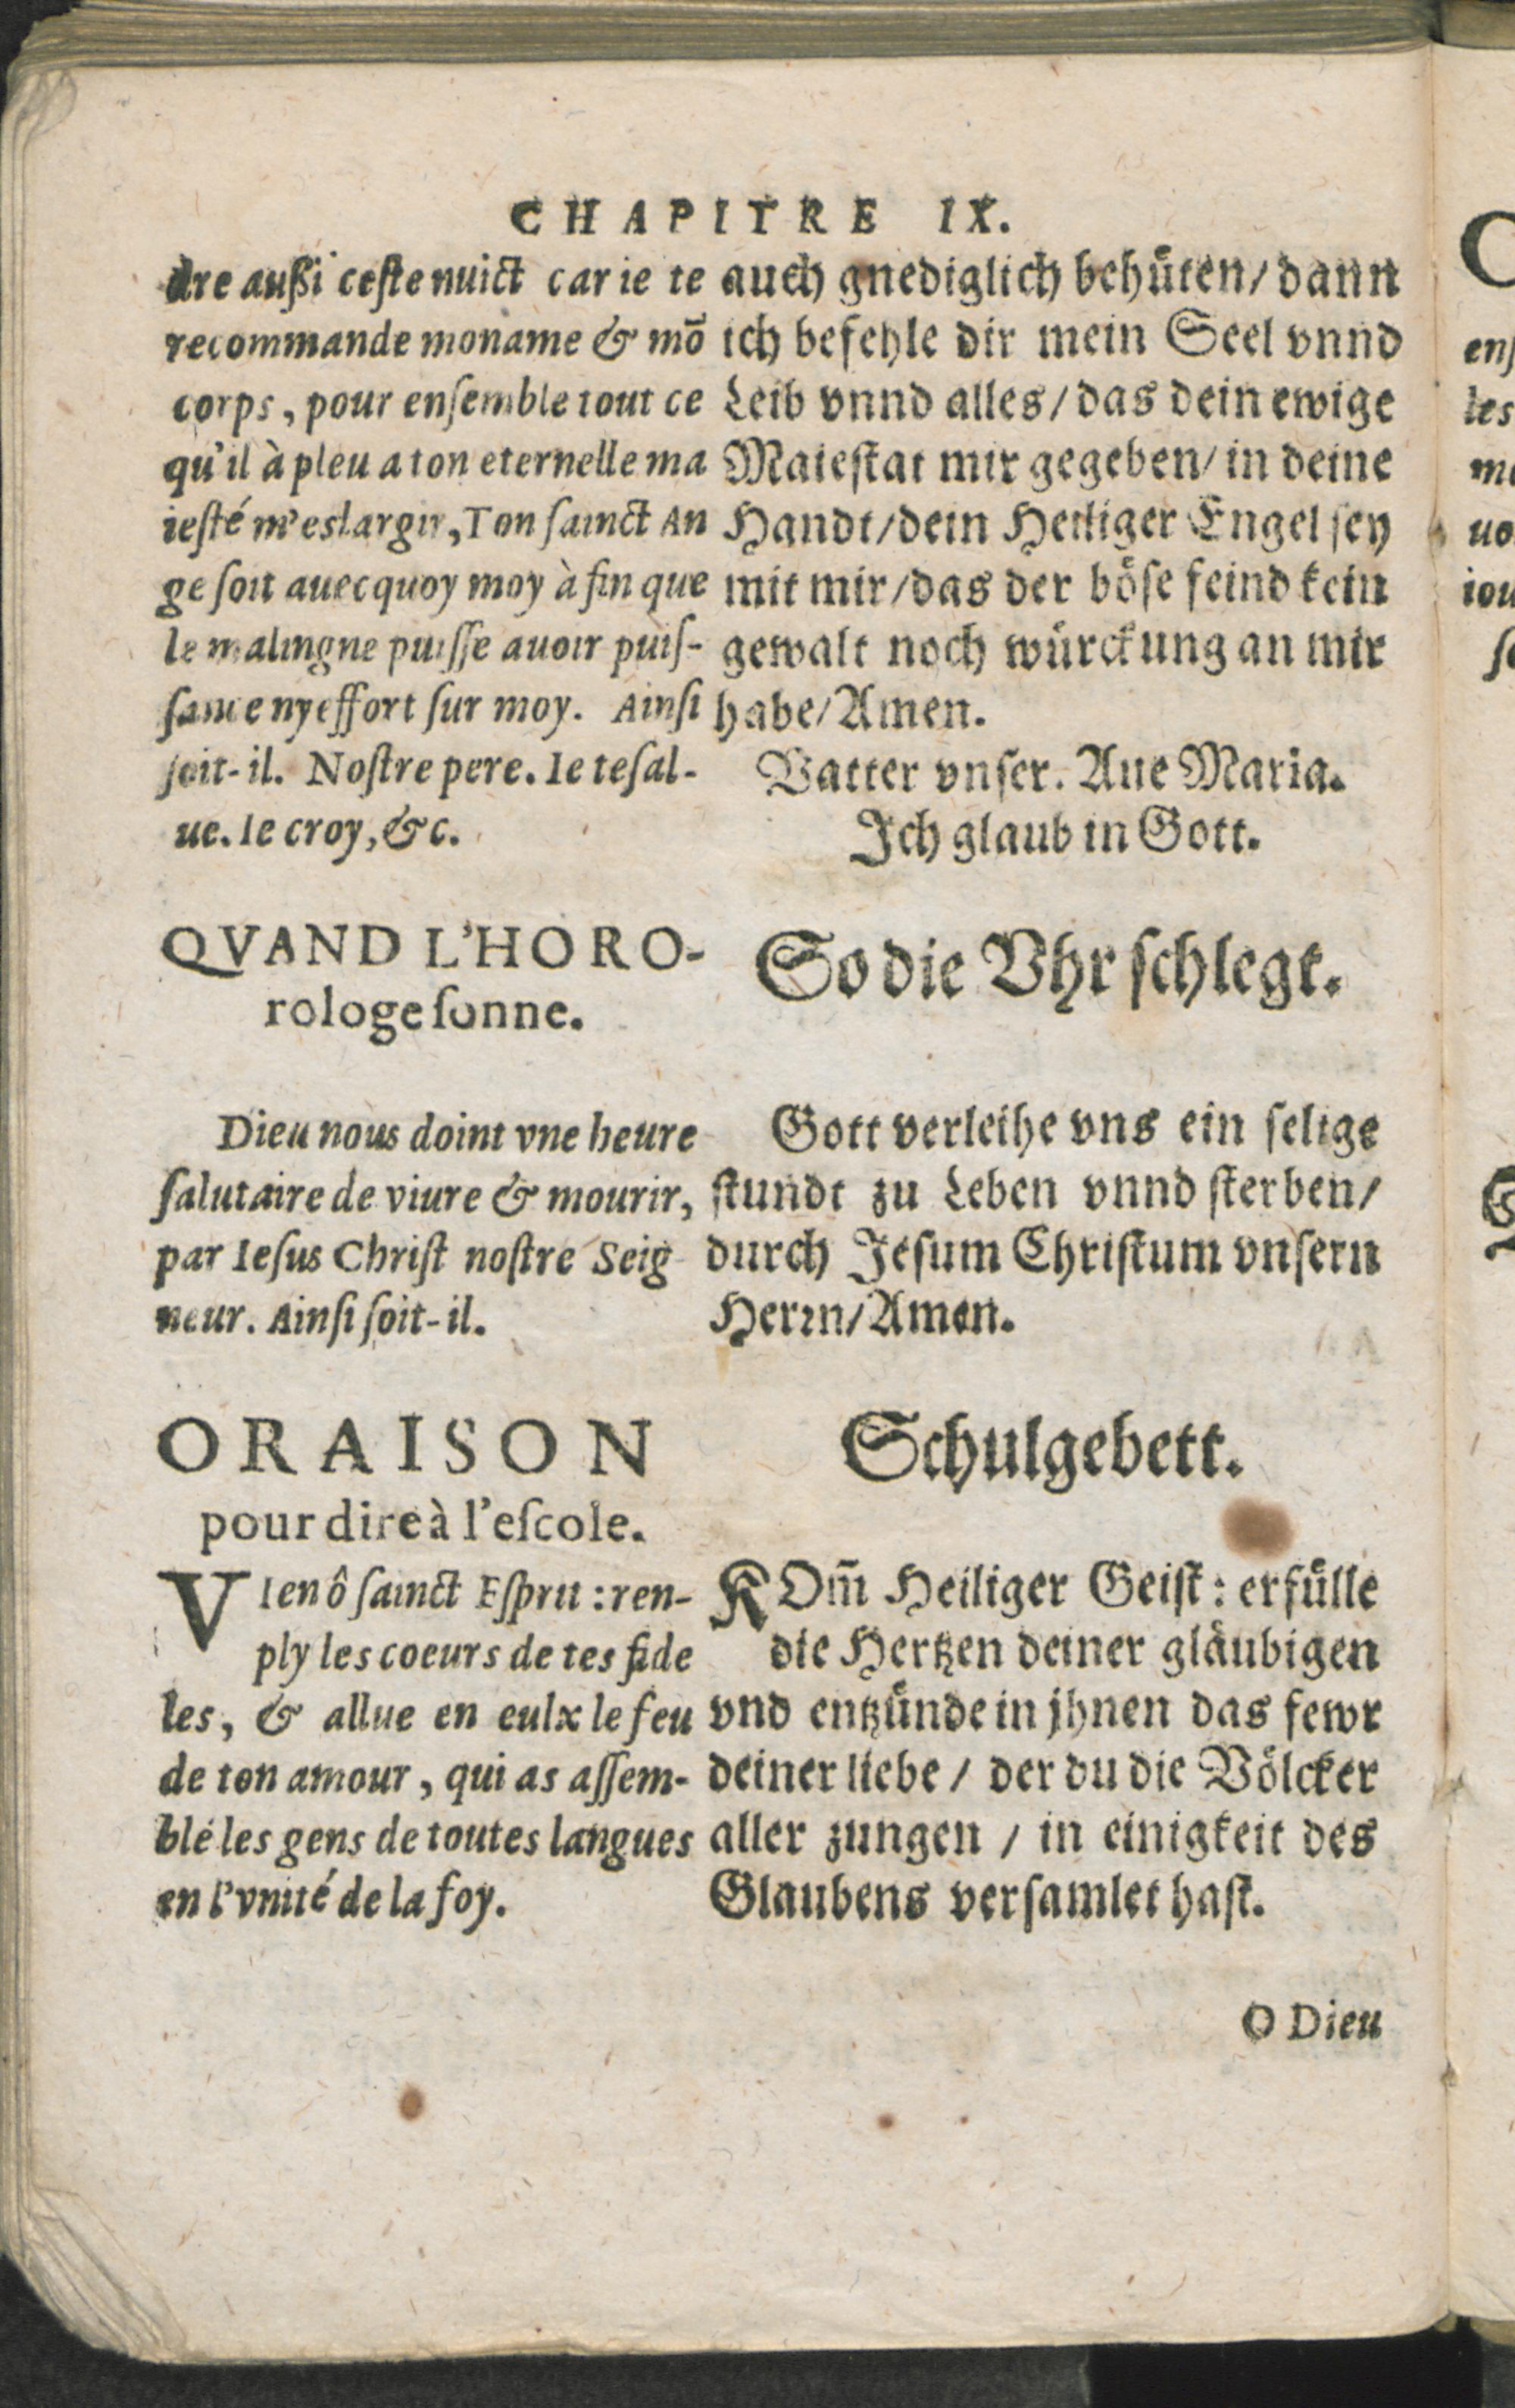 CHAPITRE IX.
dre außi ceſte nuict car ie te
recommande moname & mō
corps, pour enſemble tout ce
qu'il à pleu a ton eternelle ma
ieſté m'eslargir, Ton ſainct An
ge ſoit auecquoy moy à fin que
le malingne puiſſe auoir puiſ-
ſance ny effort ſur moy. Ainſi
ſoit-il. Noſtre pere. Ie te ſal-
ue. Ie croy, &c.
QVAND L'HORO-
rologe ſonne.
Dieu nous doint vne heure
ſalutaire de viure & mourir,
par Ieſus Chriſt noſtre Seig
neur. Ainſi ſoit-il.
ORAISON
pour dire à l'eſcole.
VIen ô ſainct Eſprit: ren-
ply les coeurs de tes fide
les, & allue en eulx le feu
de ton amour, qui as aſſem-
blé les gens de toutes langues
en l'vnité de la foy.
auch gnediglich behüten/ dann
ich befehle dir mein Seel vnnd
Leib vnnd alles/ das dein ewige
Maieſtat mir gegeben/ in deine
Handt/ dein Heiliger Engel ſey
mit mir/ das der böſe feind kein
gewalt noch würckung an mir
habe/ Amen.
Vatter vnſer. Aue Maria.
Ich glaub in Gott.
So die Vhr ſchlegt.
Gott verleihe vns ein ſelige
ſtundt zu Leben vnnd ſterben/
durch Jeſum Chriſtum vnſern
Herꝛn/ Amen.
Schulgebett.
KOm̃ Heiliger Geiſt: erfülle
die Hertzen deiner gläubigen
vnd entzünde in jhnen das fewr
deiner liebe/ der du die Völcker
aller zungen/ in einigkeit des
Glaubens verſamlet haſt.
O Dieu